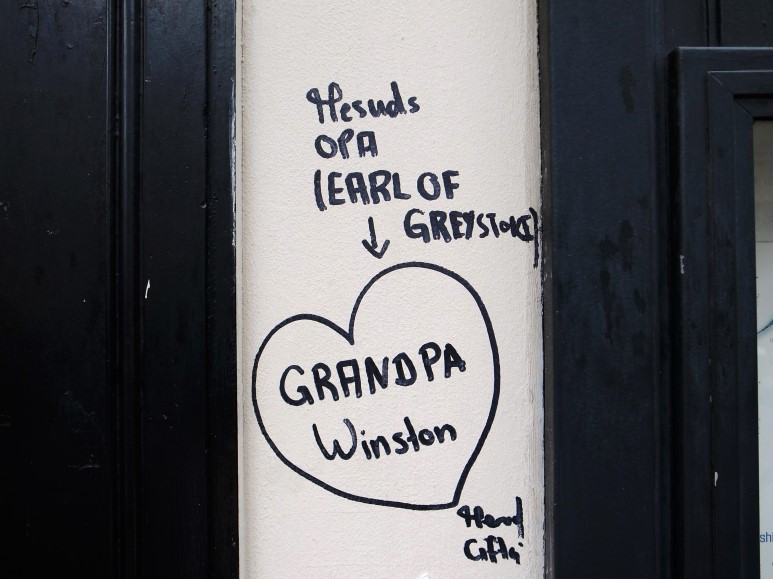 Hesuds
OPA
(EARL OF
GREYSTOKE)
GRANDPA
Winston